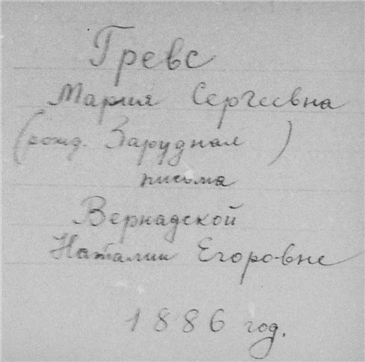 Гревс
Мария Сергеевна
(рожд. Зарудная)
письма
Вернадской
Наталии Егоровне
1886 год.